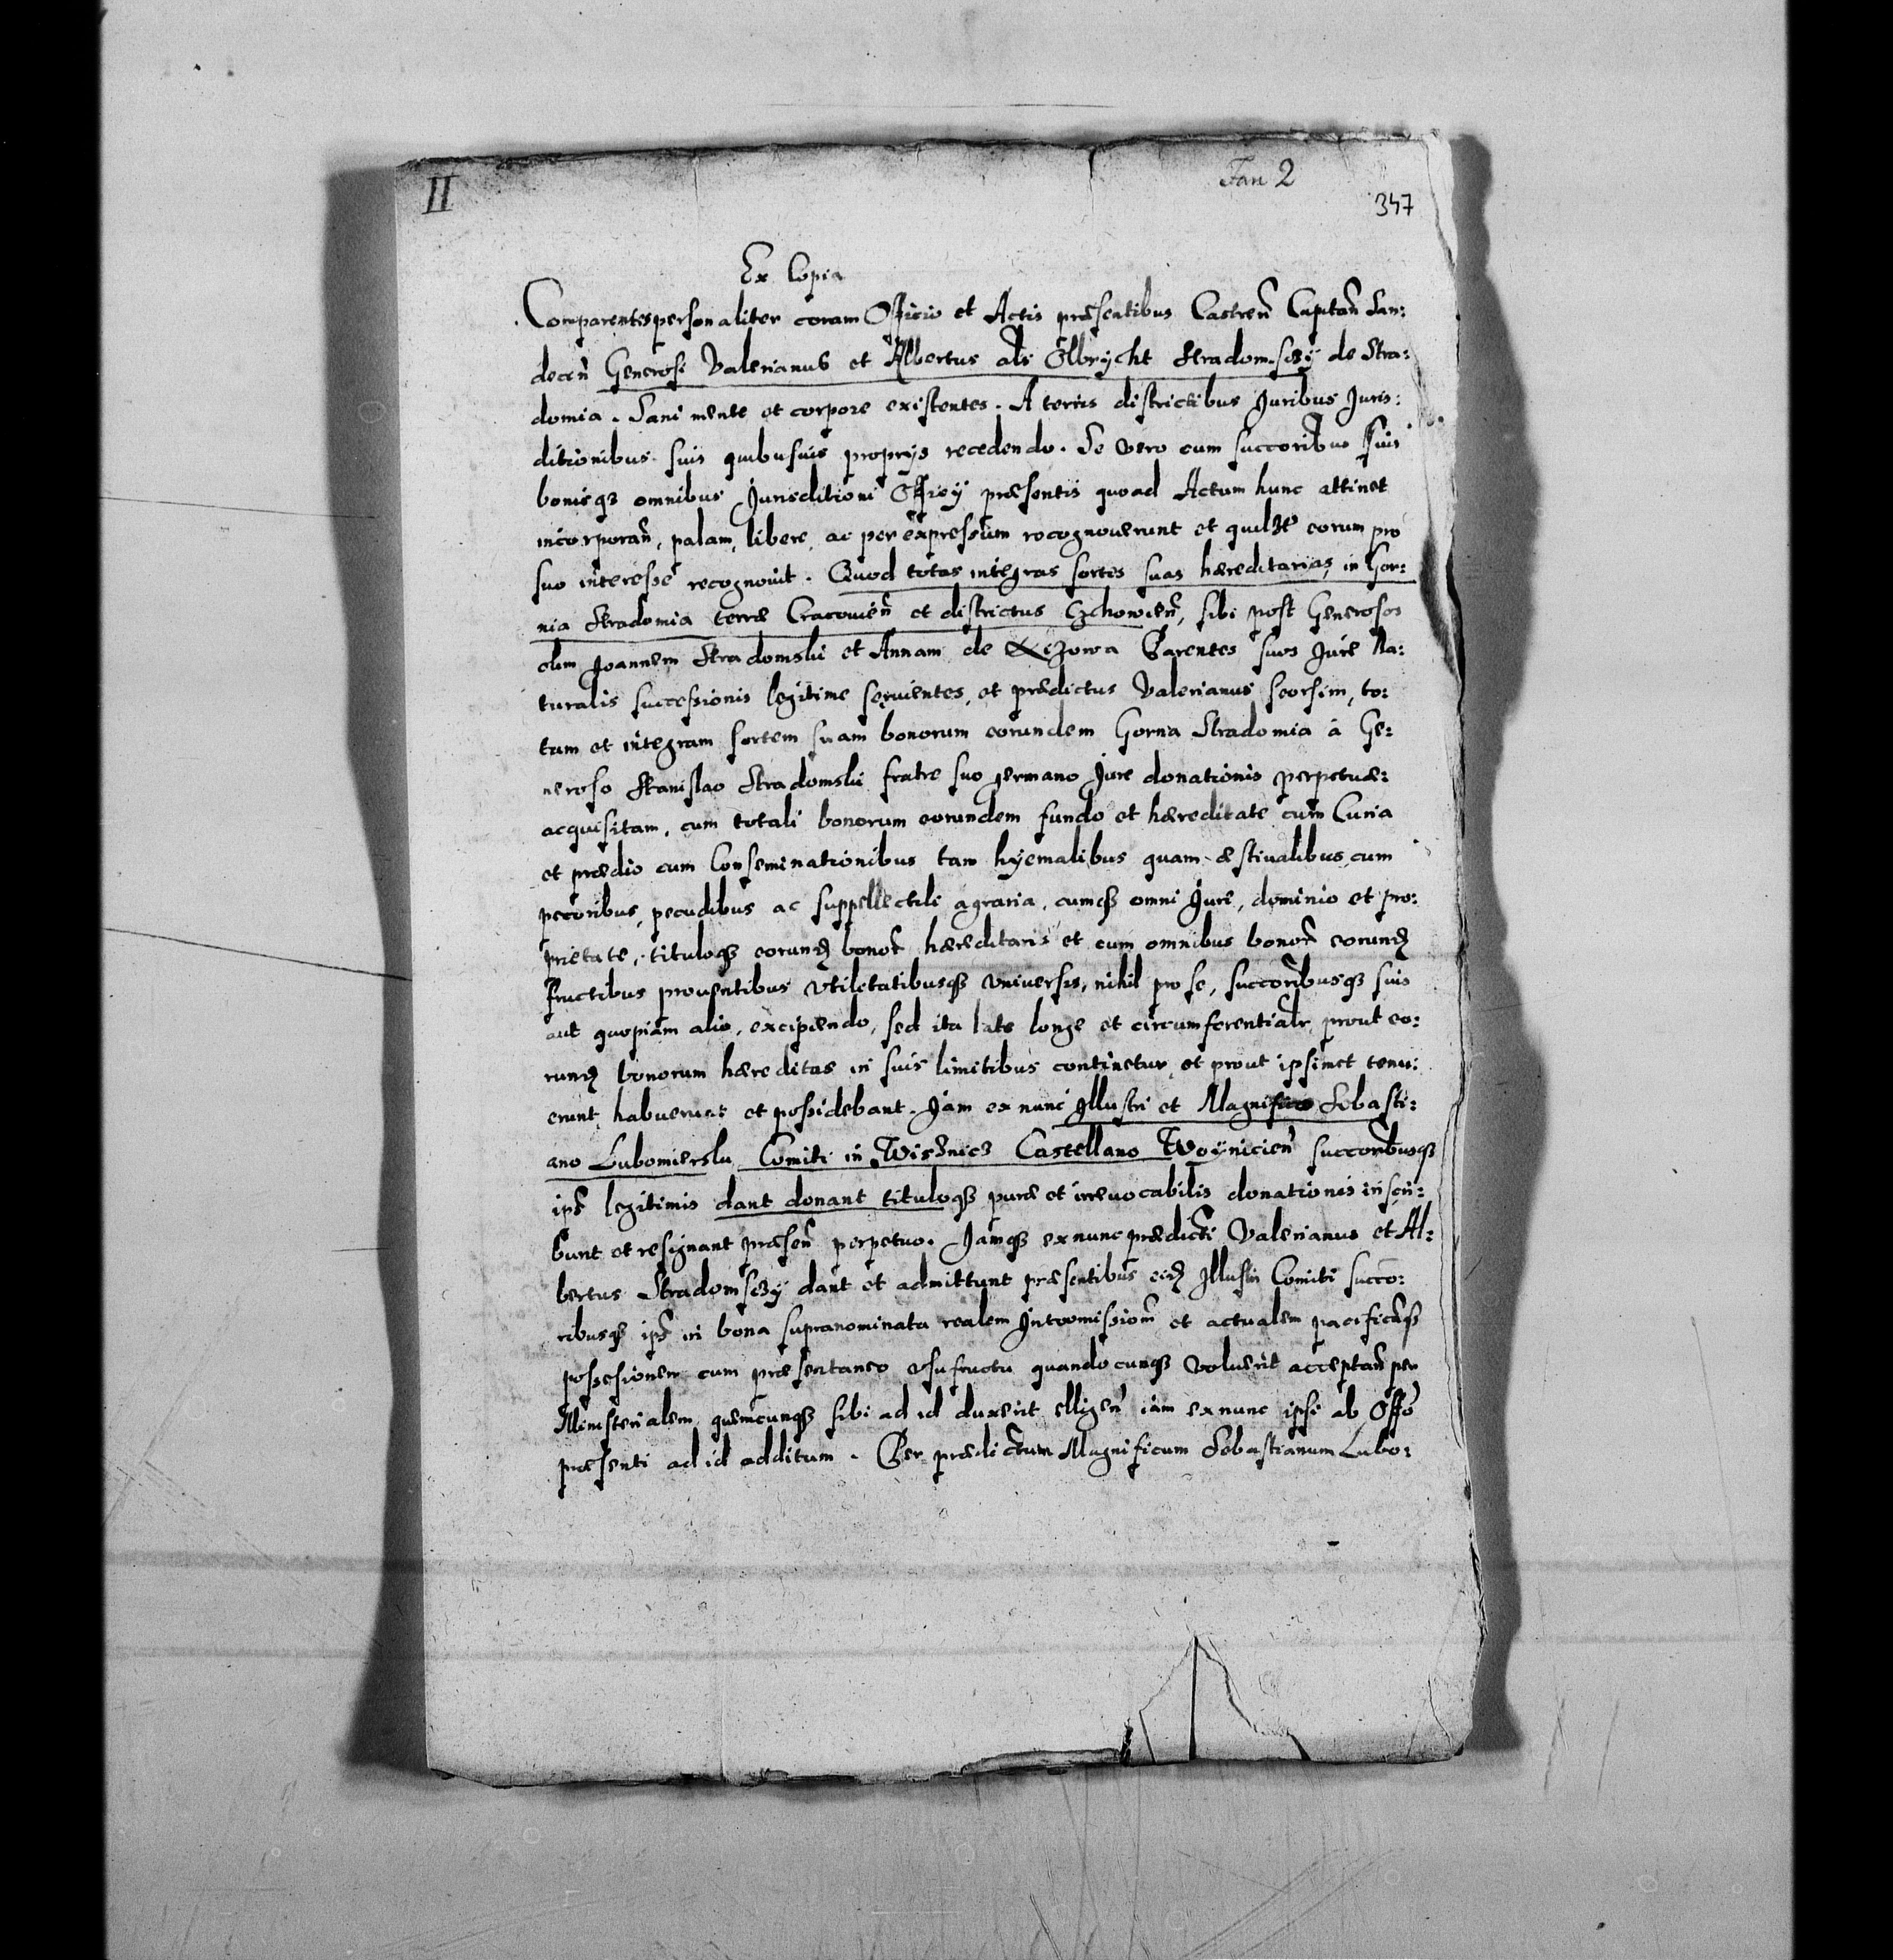 II
Fan 2
347
Ex Copia
Comparentes personaliter coram Officio et Actis præsentibus Castreñ Capitañ San:
deceñ Generosi Valerianus et Albertus als Olbrycht Stradomsczy de Stra:
domia. Sani mente et corpore existentes. A terris districtibus Juribus Juris:
ditionibus suis quibusuis proprijs recedendo. Se vero cum succoribus suis
bonisqȝ omnibus Jurisditioni Officij præsentis quoad Actum hunc attinet
incorporañ, palam, libere, ac per expressum recognouerunt et quilȝt eorum pro
suo interesse recognouit. Quod totas integras sortes suas hæreditarias, in Gor:
nia Stradomia terræ Cracouieñ et districtus Czchowieñ, sibi post Generosos
olim Joannem Stradomski et Annam de Parentes suos Jure Na:
turalis successionis legitime seruientes, et prædictus Valerianus seorsim, to:
tam et integram sortem suam bonorum eorundem Gorna Stradomia à Ge:
neroso Stanislao Stradomski fratre suo germano Jure donationis perpetuæ:
acquisitam, cum totali bonorum eorundem fundo et hæreditate cum Curia
et prædio cum Conseminationibus tam hyemalibus quam æstiualibus, cum
pecoribus, pecudibus ac suppellectili agraria, cumqȝ omni Jure, dominio et pro:
prietate, tituloqȝ eorundꝫ bonor̃ hæreditario et cum omnibus bonor̃ eorundꝫ
fructibus prouentibus vtilitatibusqȝ vniuersis, nihil pro se, succoribusqȝ suis
aut quopiam alio, excipiendo, sed ita late longe et circumferentialr prout eo:
rundꝫ bonorum hæreditas in suis limitibus continetur, et prout ipsimet tenu:
erunt, habuerunt et possidebant. Jam ex nunc Illustri et Magnifico Sebasti:
ano Lubomierski Comiti in Wisznicz Castellano Woynicieñ succoribusqȝ
ips̃ legitimis dant donant tituloqȝ puræ et irreuocabilis donationis inscri:
bunt et resignant præseñ perpetuo. Jamqȝ ex nunc prædicti Valerianus et Al:
bertus Stradomsczy dant et admittunt præsentibus eidꝫ Illustri Comiti succo:
ribusqȝ ips̃ in bona supranominata realem Intromissionẽ et actualem pacificãqȝ
possesionem cum præsentaneo vsufructu quandocunqȝ voluerit acceptañ per
Ministerialem quemcunqȝ sibi ad id duxerit elligeñ iam ex nunc ipsi ab Offõ
præsenti ad id additum. Per prædictum Magnificum Sebastianum Lubo: